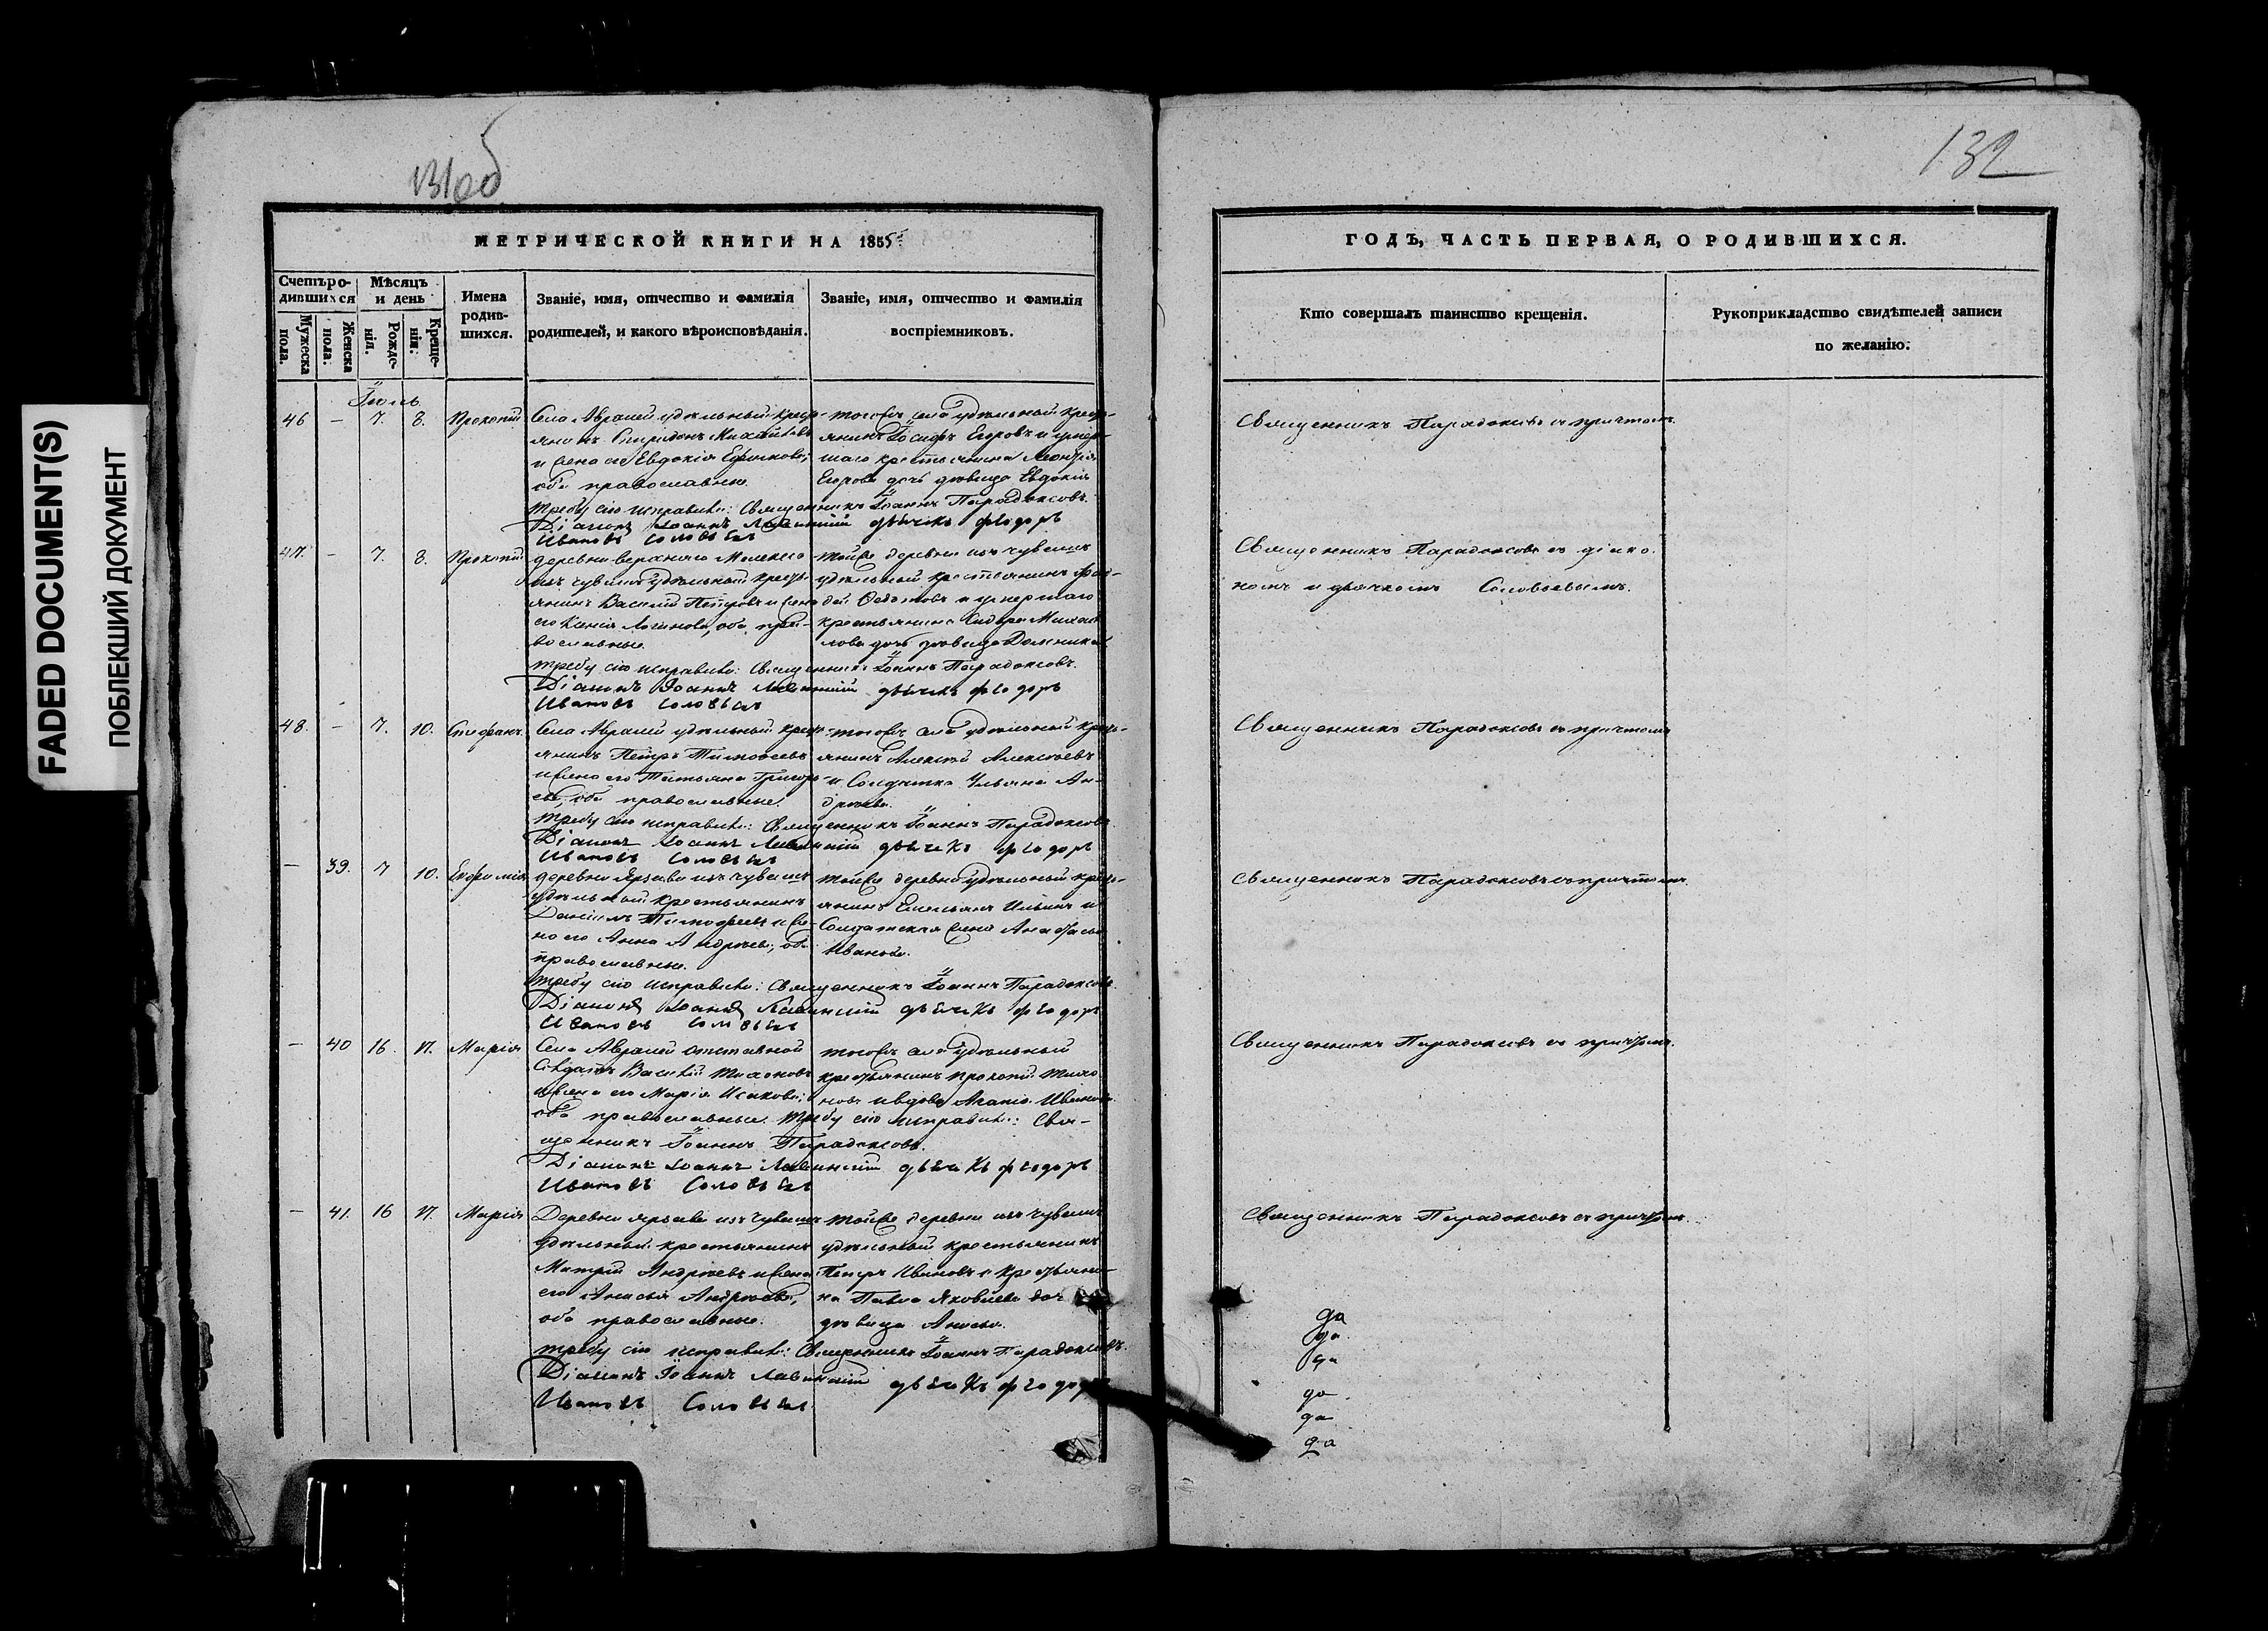 FADED DOCUMENT(S)
ПОБЛЕКШИЙ ДОКУМЕНТ
131 об
132
МЕТРИЧЕСКОЙ КНИГИ НА 1855
Счетъ родившихся
Мужеска пола.
Женска пола.
Мѣсяцъ и день
Рожденія.
Крещенія.
Имена родившихся.
Званіе, имя, отчество и фамилія
родителей, и какого вѣроисповѣданія.
Званіе, имя, отчество и фамилія
воспріемниковъ.
Іюль
46 — 7. 8. Прокопій
Села Авралей удѣльный кресть-
янинъ Спиридонъ Михайловъ
и жена его Евдокія
оба православные.
тогожъ села удѣльный кресть-
янинъ Іосифъ Егоровъ и умер-
шаго крестьянина
Егорова дочь дѣвица Евдокія
требу сію исправили: Священникъ Іоаннъ Парадоксовъ.
Діаконъ Іоаннъ дьячекъ Феодоръ
Ивановъ Соловьевъ
47. — 7. 8. Прокопій
деревни верхняго
изъ чувашъ удѣльный кресть-
янинъ Василій Петровъ и жена
его Ксенія Логинова, оба пра-
вославные.
тойже деревни изъ чувашъ
удѣльный крестьянинъ
и умершаго
крестьянина Сидора Михай-
лова дочь дѣвица Домника
требу сію исправили: Священникъ Іоаннъ Парадоксовъ.
Діаконъ Іоаннъ дьячекъ Феодоръ
Ивановъ Соловьевъ
48. — 7. 10. Стефанъ
Села Авралей удѣльный кресть-
янинъ Петръ Тимоѳеевъ
и жена его Татьяна Григорь-
ева, оба православные.
тогожъ села удѣльный кресть-
янинъ Алексѣй Алексѣевъ
и Солдатка Ульяна Ан-
дреева.
требу сію исправили: Священникъ Іоаннъ Парадоксовъ
Діаконъ Іоаннъ дьячекъ Феодоръ
Ивановъ Соловьевъ
— 39. 7 10. Евфимія
деревни изъ чувашъ
удѣльный крестьянинъ
Даніилъ Тимофеевъ и же-
на его Анна Андреева, оба
православные.
тойже деревни удѣльный кресть-
янинъ Емельянъ Ильинъ и
Солдатская жена Анастасья
Иванова.
требу сію исправили: Священникъ Іоаннъ Парадоксовъ
Діаконъ Іоаннъ дьячекъ Феодоръ
Ивановъ Соловьевъ
— 40 16. 17. Марія
Села Авралей отставной
Солдатъ Василій Тихоновъ
и жена его Марія Исакова;
оба православные.
тогожъ села удѣльный
крестьянинъ Прокопій Тихо
новъ и вдова Иванова.
требу сію исправили: Свя-
щенникъ Іоаннъ Парадоксовъ.
Діаконъ Іоаннъ дьячекъ Феодоръ
Ивановъ Соловьевъ
— 41. 16 17. Марія
Деревни изъ чувашъ
удѣльный крестьянинъ
Андреевъ и жена
его Анисья Андреева,
оба православные.
тойже деревни изъ чувашъ
удѣльный крестьянинъ
Петръ Ивановъ и крестьяни-
на Павла Яковлева доч
дѣвица Анисья.
требу сію исправили: Священникъ Іоаннъ Парадоксовъ.
Діаконъ Іоаннъ дьячекъ Феодоръ
Ивановъ Соловьевъ
ГОДЪ, ЧАСТЬ ПЕРВАЯ, О РОДИВШИХСЯ.
Кто совершалъ таинство крещенія.
Рукоприкладство свидѣтелей записи
по желанію.
Священникъ Парадоксовъ съ причтомъ.
Священникъ Парадоксовъ съ діако-
номъ и дьячкомъ Соловьевымъ.
Священникъ Парадоксовъ съ причтомъ
Священникъ Парадоксовъ съ причтомъ.
Священникъ Парадоксовъ съ причтомъ.
Священникъ Парадоксовъ съ причтомъ.
да
да
да
да
да
да